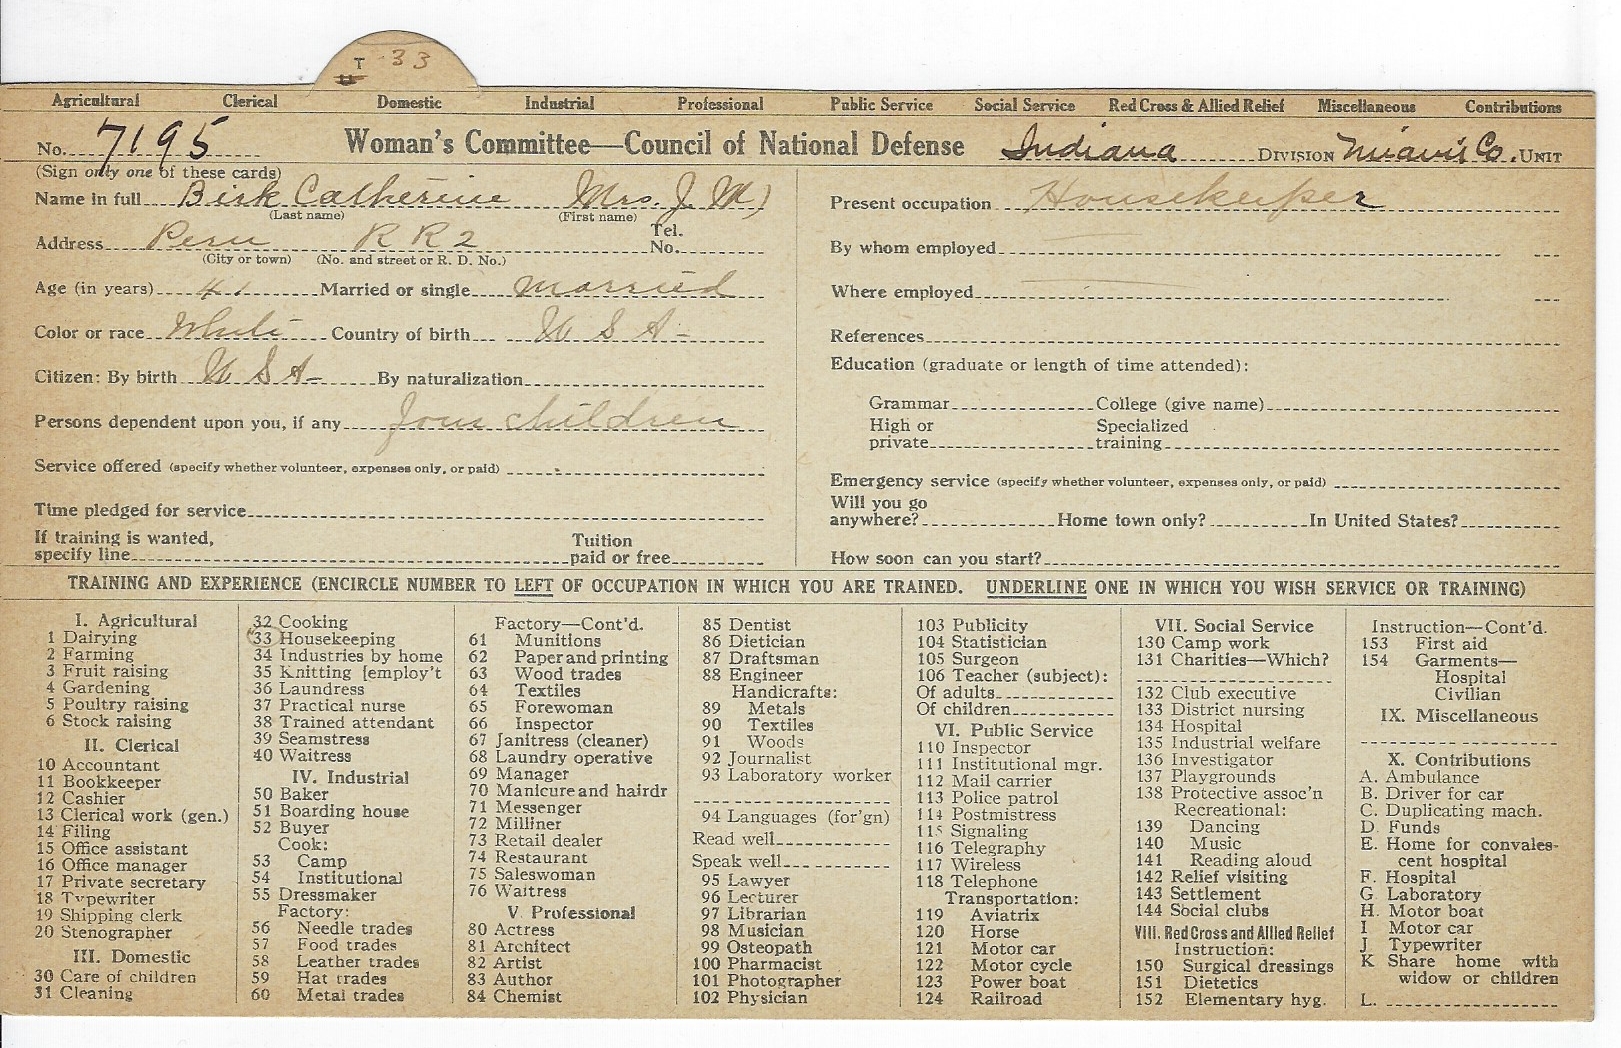 T 33
Agricultural Clerical Domestic Industrial Professional Public Service Social Service Red Cross & Allied Relief Miscellaneous Contributions
No. 7195 Woman's Committee—Council of National Defense Indiana DIVISION Miami Co. UNIT
(Sign only one of these cards)
Name in full Birk Catherine Mrs. J. M)
(Last name) (First name)
Address Peru R R 2 Tel. No.
(City or town) (No. and street or R. D. No.)
Age (in years) 41 Married or single Married
Color or race White Country of birth U S A
Citizen: By birth U S A By naturalization
Persons dependent upon you, if any four children
Service offered (specify whether volunteer, expenses only, or paid)
Time pledged for service
If training is wanted,
specify line Tuition paid or free
Present occupation Housekeeper
By whom employed
Where employed
References
Education (graduate or length of time attended):
Grammar College (give name)
High or private Specialized training
Emergency service (specify whether volunteer, expenses only, or paid)
Will you go
anywhere? Home town only? In United States?
How soon can you start?
TRAINING AND EXPERIENCE (ENCIRCLE NUMBER TO LEFT OF OCCUPATION IN WHICH YOU ARE TRAINED. UNDERLINE ONE IN WHICH YOU WISH SERVICE OR TRAINING)
I. Agricultural
1 Dairying
2 Farming
3 Fruit raising
4 Gardening
5 Poultry raising
6 Stock raising
II. Clerical
10 Accountant
11 Bookkeeper
12 Cashier
13 Clerical work (gen.)
14 Filing
15 Office assistant
16 Office manager
17 Private secretary
18 Typewriter
19 Shipping clerk
20 Stenographer
III. Domestic
30 Care of children
31 Cleaning
32 Cooking
33 Housekeeping
34 Industries by home
35 Knitting [employ't
36 Laundress
37 Practical nurse
38 Trained attendant
39 Seamstress
40 Waitress
IV. Industrial
50 Baker
51 Boarding house
52 Buyer
Cook:
53 Camp
54 Institutional
55 Dressmaker
Factory:
56 Needle trades
57 Food trades
58 Leather trades
59 Hat trades
60 Metal trades
Factory—Cont'd.
61 Munitions
62 Paper and printing
63 Wood trades
64 Textiles
65 Forewoman
66 Inspector
67 Janitress (cleaner)
68 Laundry operative
69 Manager
70 Manicure and hairdr
71 Messenger
72 Milliner
73 Retail dealer
74 Restaurant
75 Saleswoman
76 Waitress
V. Professional
80 Actress
81 Architect
82 Artist
83 Author
84 Chemist
85 Dentist
86 Dietician
87 Draftsman
88 Engineer
Handicrafts:
89 Metals
90 Textiles
91 Woods
92 Journalist
93 Laboratory worker
94 Languages (for'gn)
Read well
Speak well
95 Lawyer
96 Lecturer
97 Librarian
98 Musician
99 Osteopath
100 Pharmacist
101 Photographer
102 Physician
103 Publicity
104 Statistician
105 Surgeon
106 Teacher (subject):
Of adults
Of children
VI. Public Service
110 Inspector
111 Institutional mgr.
112 Mail carrier
113 Police patrol
114 Postmistress
115 Signaling
116 Telegraphy
117 Wireless
118 Telephone
Transportation:
119 Aviatrix
120 Horse
121 Motor car
122 Motor cycle
123 Power boat
124 Railroad
VII. Social Service
130 Camp work
131 Charities—Which?
132 Club executive
133 District nursing
134 Hospital
135 Industrial welfare
136 Investigator
137 Playgrounds
138 Protective assoc'n
Recreational:
139 Dancing
140 Music
141 Reading aloud
142 Relief visiting
143 Settlement
144 Social clubs
VIII. Red Cross and Allied Relief
Instruction:
150 Surgical dressings
151 Dietetics
152 Elementary hyg.
Instruction—Cont'd.
153 First aid
154 Garments—
Hospital
Civilian
IX. Miscellaneous
X. Contributions
A. Ambulance
B. Driver for car
C. Duplicating mach.
D. Funds
E. Home for convales-
cent hospital
F. Hospital
G. Laboratory
H. Motor boat
I Motor car
J. Typewriter
K Share home with
widow or children
L.